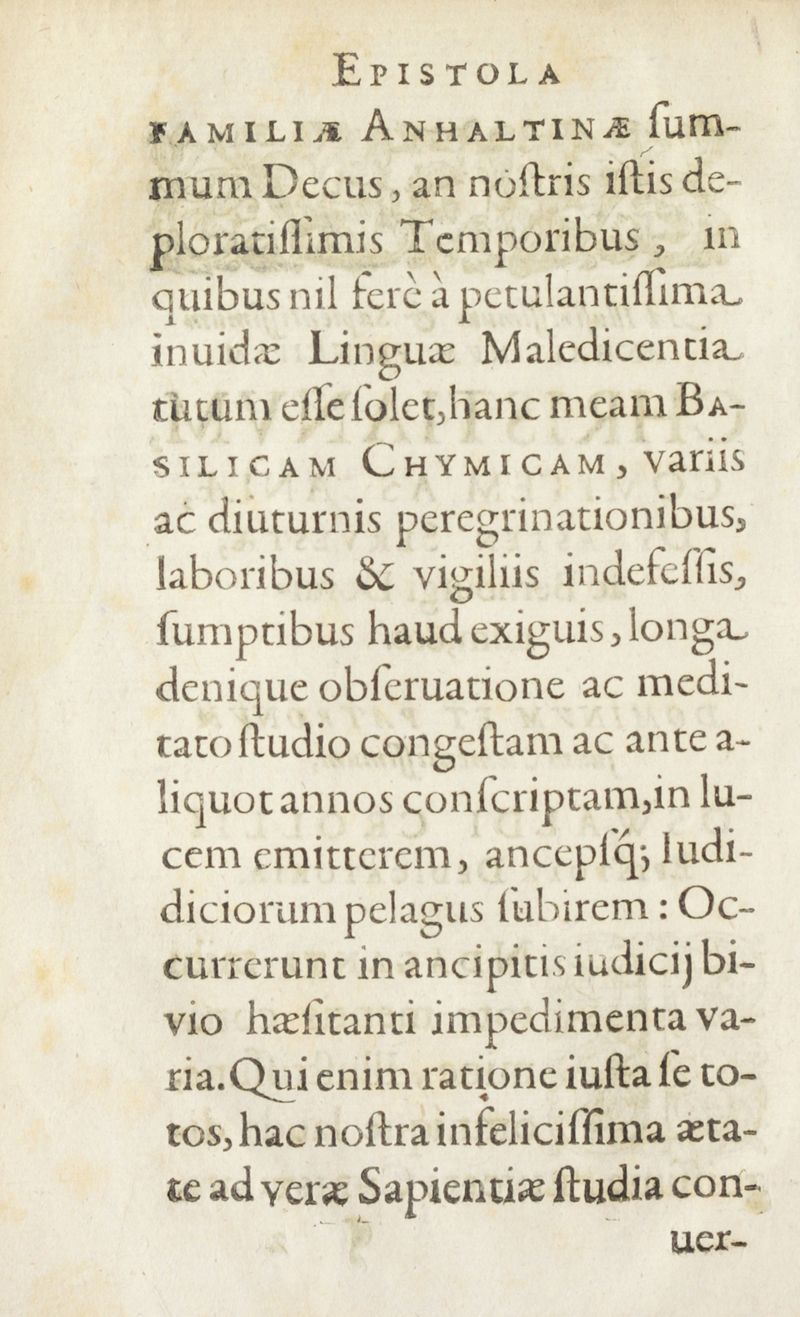 EPISTOLA
FAMILIÆ ANHALTINÆ ſum-
mum Decus, an noſtris iſtis de-
ploratiſſimis Temporibus, in
quibus nil ferè à petulantiſſima
inuidæ Linguæ Maledicentia
tutum eſſe ſolet, hanc meam BA-
SILICAM CHYMICAM, variis
ac diuturnis peregrinationibus,
laboribus & vigiliis indefeſſis,
ſumptibus haud exiguis, longa
denique obſeruatione ac medi-
tato ſtudio congeſtam ac ante a-
liquot annos conſcriptam, in lu-
cem emitterem, ancepſq́; Iudi-
diciorum pelagus ſubirem: Oc-
currerunt in ancipitis iudicij bi-
vio hæſitanti impedimenta va-
ria. Qui enim ratione iuſta ſe to-
tos, hac noſtra infeliciſſima æta-
te ad veræ Sapientiæ ſtudia con-
uer-